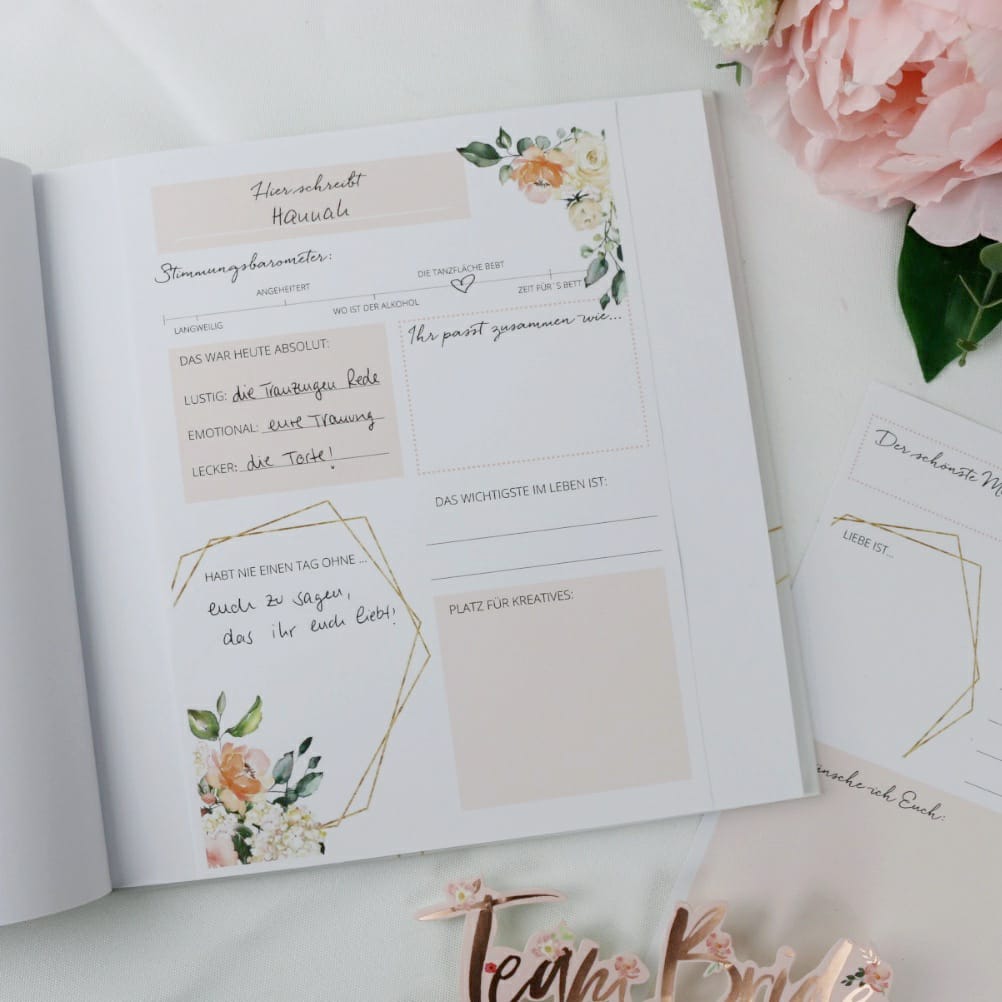 Hier schreibt
Hannah
Stimmungsbarometer:
ANGEHEITERT
DIE TANZFLÄCHE BEBT
LANGWEILIG
WO IST DER ALKOHOL
ZEIT FÜR´S BETT
DAS WAR HEUTE ABSOLUT:
LUSTIG: die Trauzeugen Rede
EMOTIONAL: eure Trauung
LECKER: die Torte!
Ihr passt zusammen wie...
DAS WICHTIGSTE IM LEBEN IST:
HABT NIE EINEN TAG OHNE ...
euch zu sagen,
das ihr euch liebt!
PLATZ FÜR KREATIVES:
Der schönste
LIEBE IST...
ich Euch:
Team Bride